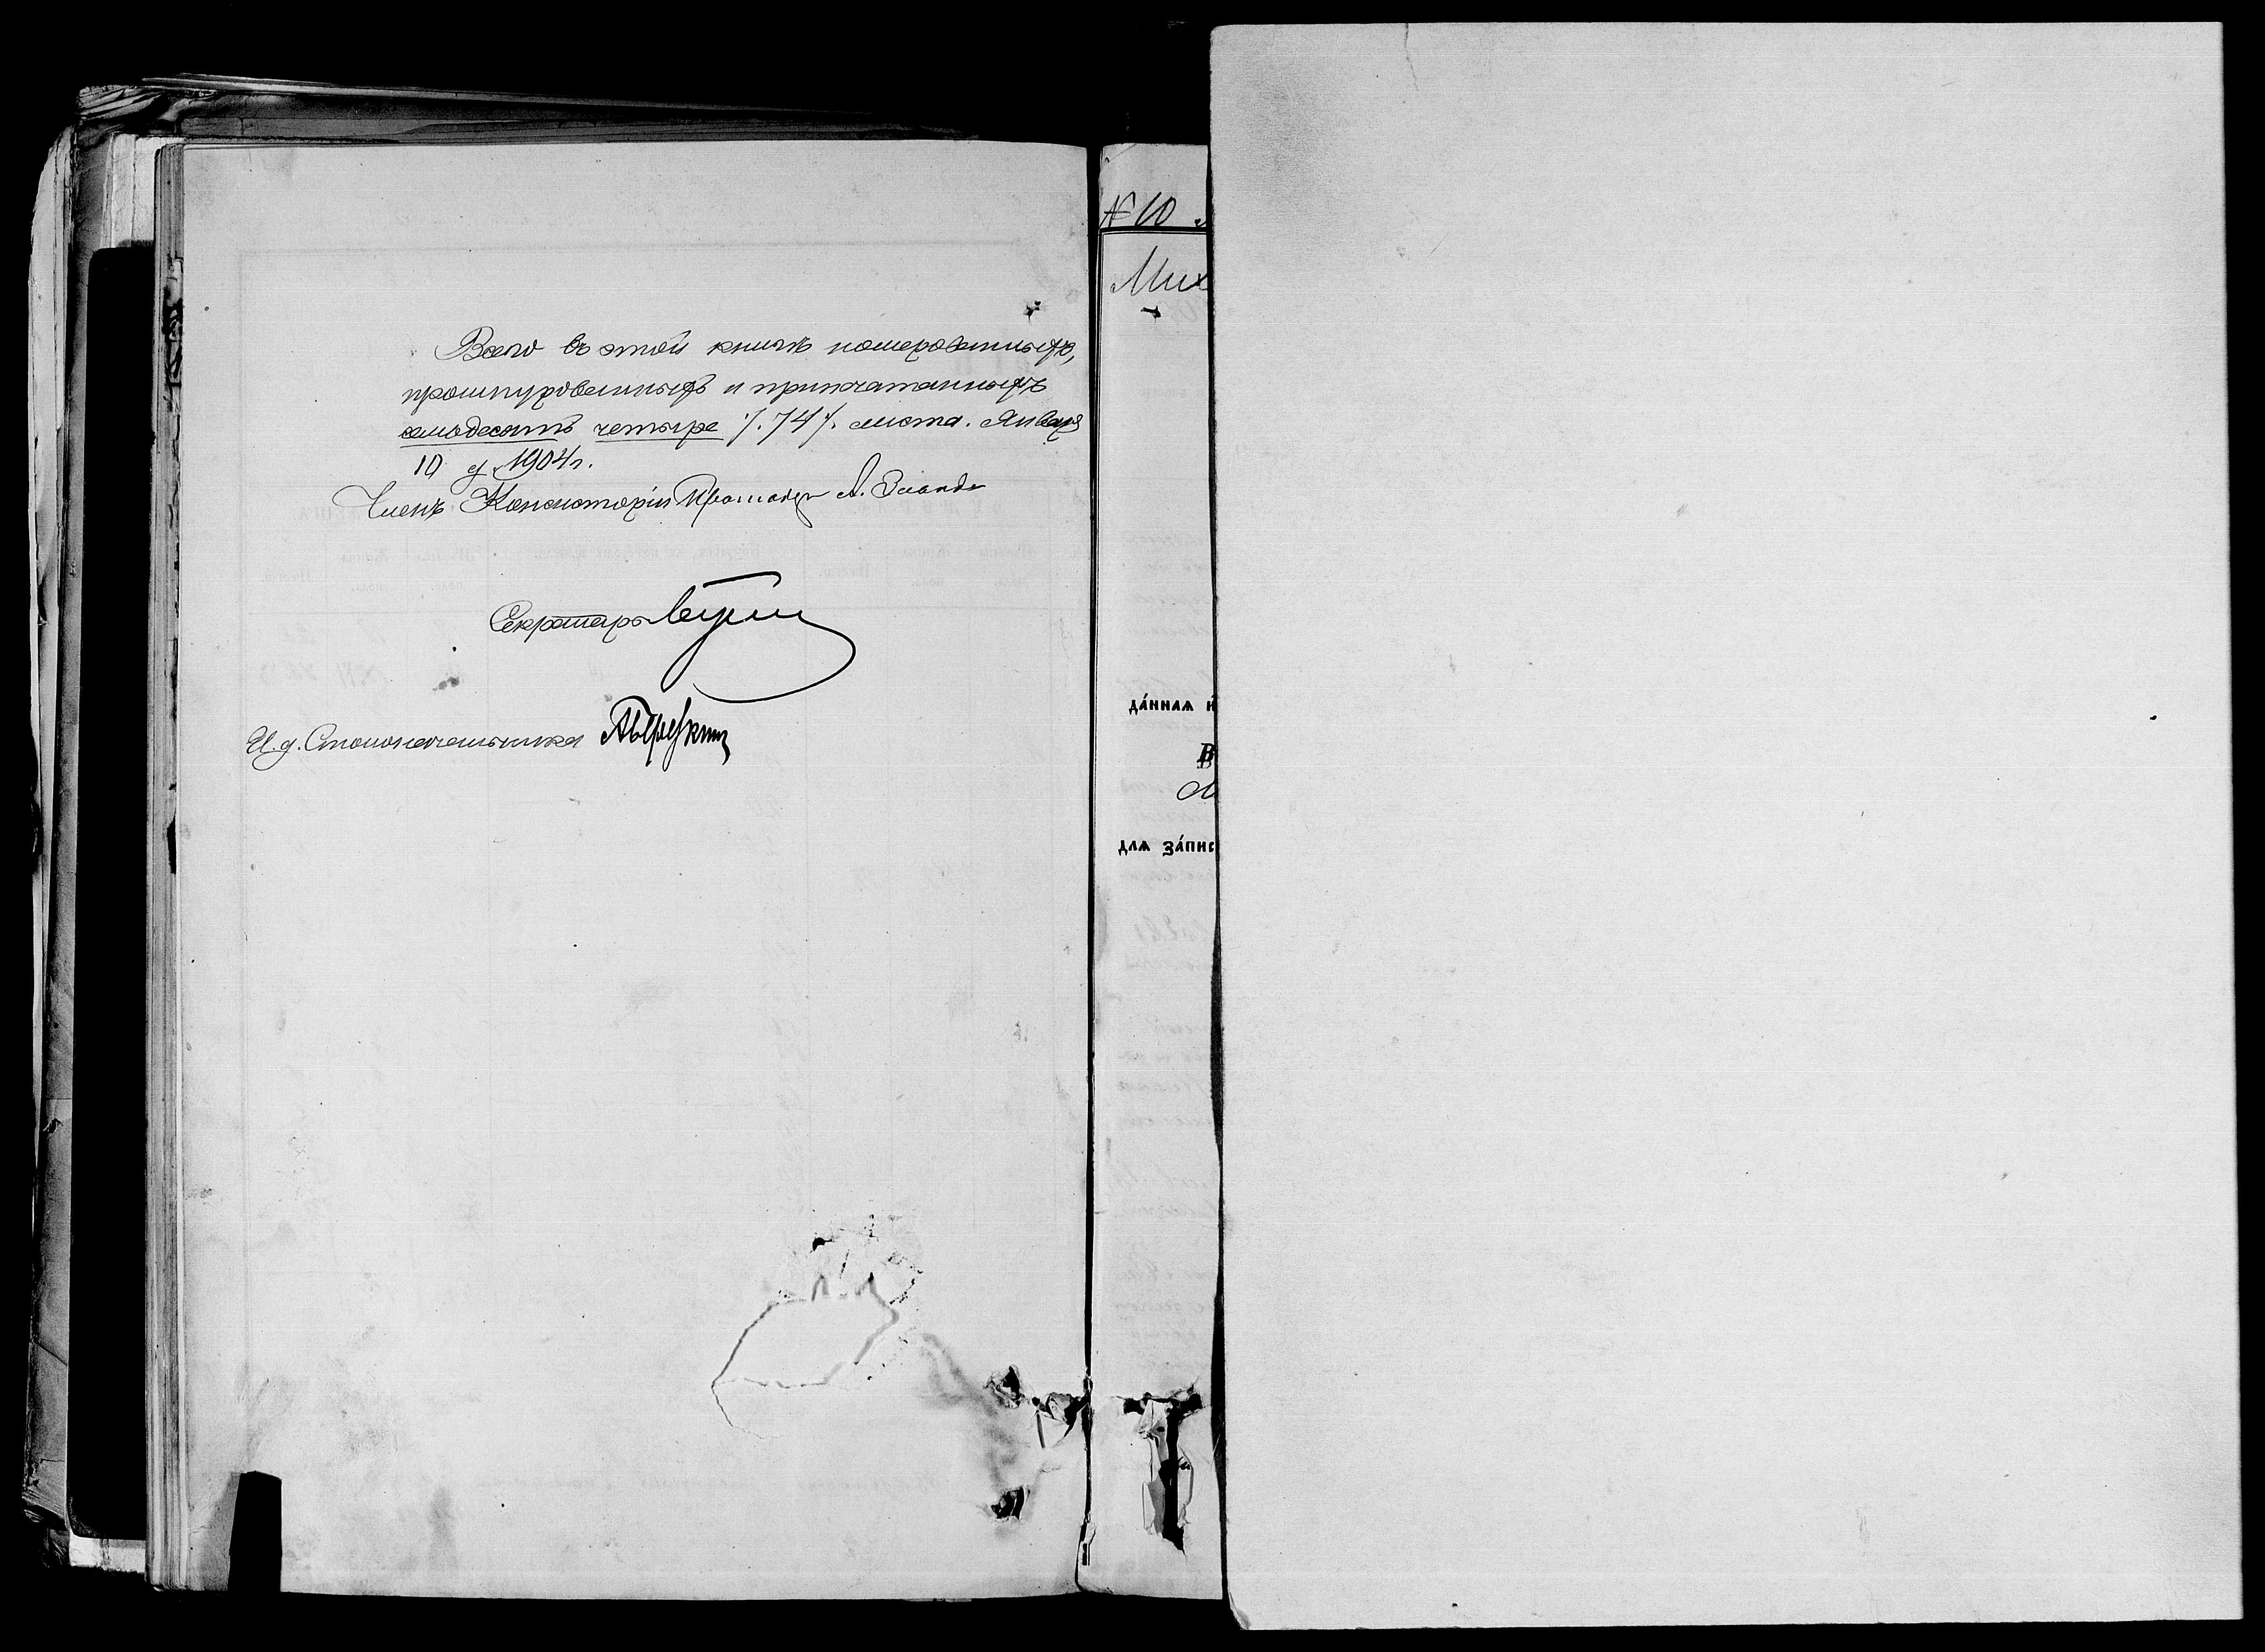 Всего въ этой книгѣ номерованныхъ,
прошнурованныхъ и припечатанныхъ
семьдесятъ четыре /.74/. листа. Января
10 д. 1904 г.
Членъ Консисторіи А.
Секретарь
И. д. Столоначальника
№ 10
Мих
да́ннаѧ и҆
В
для за́пис